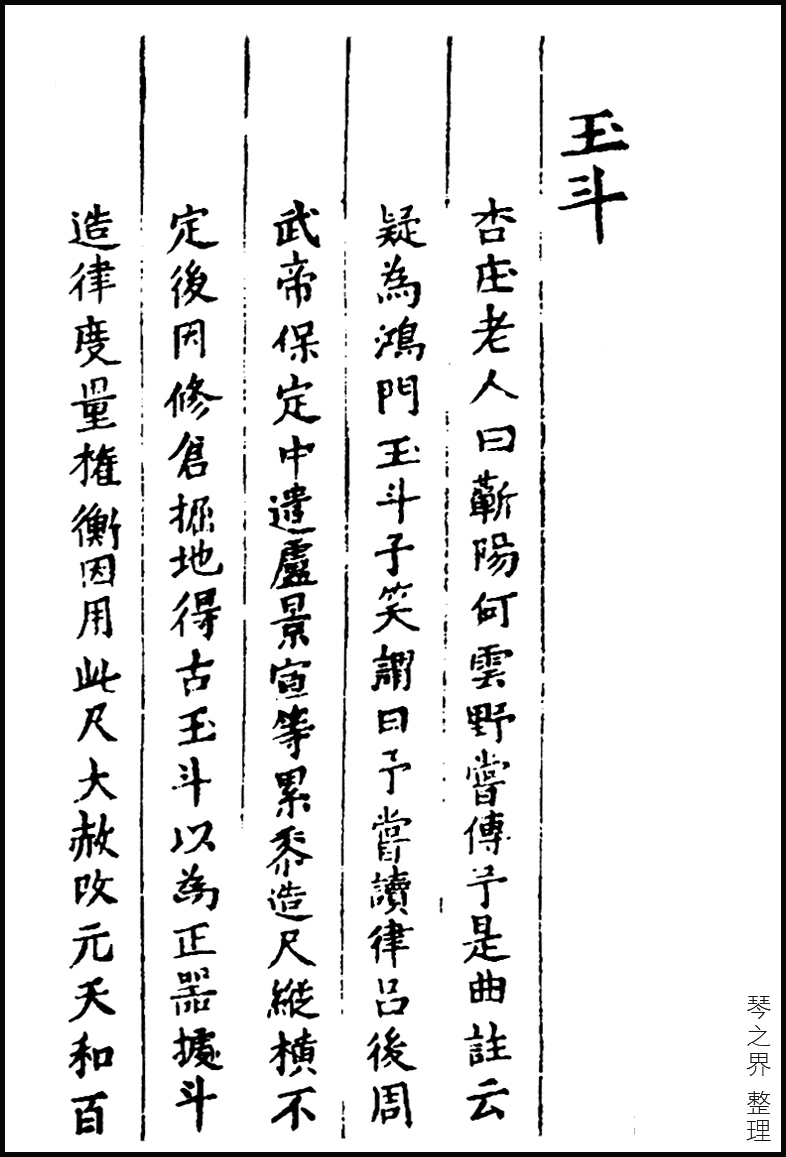 玉斗
杏庄老人曰蘄陽何雲野嘗傳予是曲註云
疑為鴻門玉斗予笑謂曰予嘗讀律呂後周
武帝保定中遣盧景宣等累黍造尺縱橫不
定後因修倉掘地得古玉斗以為正器據斗
造律度量權衡因用此尺大赦改元天和百
琴之界 整理